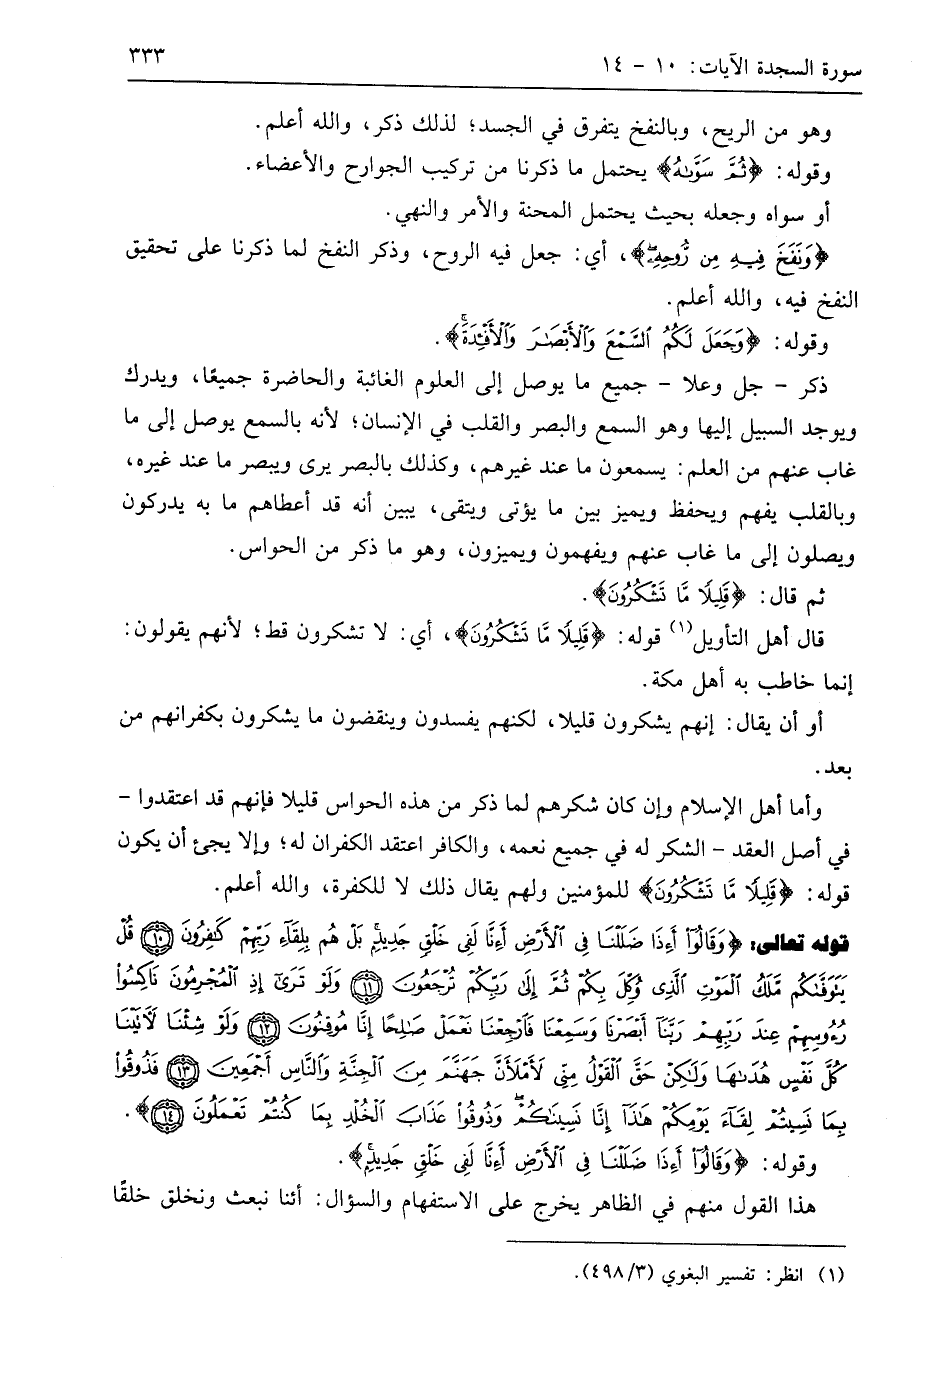 سورة السجدة الآيات: ١٠ - ١٤
٣٣٣
وهو من الريح، وبالنفخ يتفرق في الجسد؛ لذلك ذكر، والله أعلم.
وقوله: ﴿ثُمَّ سَوَّىٰهُ﴾ يحتمل ما ذكرنا من تركيب الجوارح والأعضاء.
أو سواه وجعله بحيث يحتمل المحنة والأمر والنهي.
﴿وَنَفَخَ فِيهِ مِن رُّوحِهِۦۖ﴾، أي: جعل فيه الروح، وذكر النفخ لما ذكرنا على تحقيق
النفخ فيه، والله أعلم.
وقوله: ﴿وَجَعَلَ لَكُمُ ٱلسَّمْعَ وَٱلْأَبْصَٰرَ وَٱلْأَفْـِٔدَةَۚ﴾.
ذكر - جل وعلا - جميع ما يوصل إلى العلوم الغائبة والحاضرة جميعًا، ويدرك
ويوجد السبيل إليها وهو السمع والبصر والقلب في الإنسان؛ لأنه بالسمع يوصل إلى ما
غاب عنهم من العلم: يسمعون ما عند غيرهم، وكذلك بالبصر يرى ويبصر ما عند غيره،
وبالقلب يفهم ويحفظ ويميز بين ما يؤتى ويتقى، يبين أنه قد أعطاهم ما به يدركون
ويصلون إلى ما غاب عنهم ويفهمون ويميزون، وهو ما ذكر من الحواس.
ثم قال: ﴿قَلِيلًا مَّا تَشْكُرُونَ﴾.
قال أهل التأويل(١) قوله: ﴿قَلِيلًا مَّا تَشْكُرُونَ﴾، أي: لا تشكرون قط؛ لأنهم يقولون:
إنما خاطب به أهل مكة.
أو أن يقال: إنهم يشكرون قليلا، لكنهم يفسدون وينقضون ما يشكرون بكفرانهم من
بعد.
وأما أهل الإسلام وإن كان شكرهم لما ذكر من هذه الحواس قليلا فإنهم قد اعتقدوا -
في أصل العقد - الشكر له في جميع نعمه، والكافر اعتقد الكفران له؛ وإلا يجئ أن يكون
قوله: ﴿قَلِيلًا مَّا تَشْكُرُونَ﴾ للمؤمنين ولهم يقال ذلك لا للكفرة، والله أعلم.
قوله تعالى: ﴿وَقَالُوٓا۟ أَءِذَا ضَلَلْنَا فِى ٱلْأَرْضِ أَءِنَّا لَفِى خَلْقٍ جَدِيدٍۭۚ بَلْ هُم بِلِقَآءِ رَبِّهِمْ كَٰفِرُونَ ۝١٠ قُلْ
يَتَوَفَّىٰكُم مَّلَكُ ٱلْمَوْتِ ٱلَّذِى وُكِّلَ بِكُمْ ثُمَّ إِلَىٰ رَبِّكُمْ تُرْجَعُونَ ۝١١ وَلَوْ تَرَىٰٓ إِذِ ٱلْمُجْرِمُونَ نَاكِسُوا۟
رُءُوسِهِمْ عِندَ رَبِّهِمْ رَبَّنَآ أَبْصَرْنَا وَسَمِعْنَا فَٱرْجِعْنَا نَعْمَلْ صَٰلِحًا إِنَّا مُوقِنُونَ ۝١٢ وَلَوْ شِئْنَا لَـَٔاتَيْنَا
كُلَّ نَفْسٍ هُدَىٰهَا وَلَٰكِنْ حَقَّ ٱلْقَوْلُ مِنِّى لَأَمْلَأَنَّ جَهَنَّمَ مِنَ ٱلْجِنَّةِ وَٱلنَّاسِ أَجْمَعِينَ ۝١٣ فَذُوقُوا۟
بِمَا نَسِيتُمْ لِقَآءَ يَوْمِكُمْ هَٰذَآ إِنَّا نَسِينَٰكُمْۖ وَذُوقُوا۟ عَذَابَ ٱلْخُلْدِ بِمَا كُنتُمْ تَعْمَلُونَ ۝١٤﴾.
وقوله: ﴿وَقَالُوٓا۟ أَءِذَا ضَلَلْنَا فِى ٱلْأَرْضِ أَءِنَّا لَفِى خَلْقٍ جَدِيدٍۭۚ﴾.
هذا القول منهم في الظاهر يخرج على الاستفهام والسؤال: أئنا نبعث ونخلق خلقًا
(١) انظر: تفسير البغوي (٤٩٨/٣).